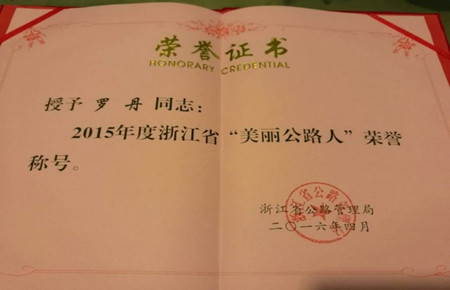 荣誉证书
HONORARY CREDENTIAL
授予 罗 丹 同志：
2015年度浙江省“美丽公路人”荣誉
称号。
浙江省公路管理局
二〇一六年四月